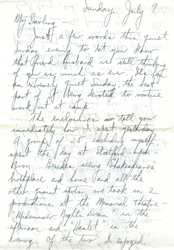 Sunday July 9
My Darling —
Just a few words this quiet
Sunday evening to let you know
that your husband is still thinking
of you as much as ever. It's
been a leisurely quiet Sunday, the last
part of it being devoted to routine
work out at camp.
The enclosures will tell you
immediately how I spent yesterday
of 25
spent the day at Stratford upon
Avon, seeing Shakespeare's
birthplace and home and all the
other quaint sites. We took in 2
productions at the Memorial Theatre —
"Midsummer Night's Dream" in the
afternoon and "Hamlet" in the
evening. Of the two I enjoyed